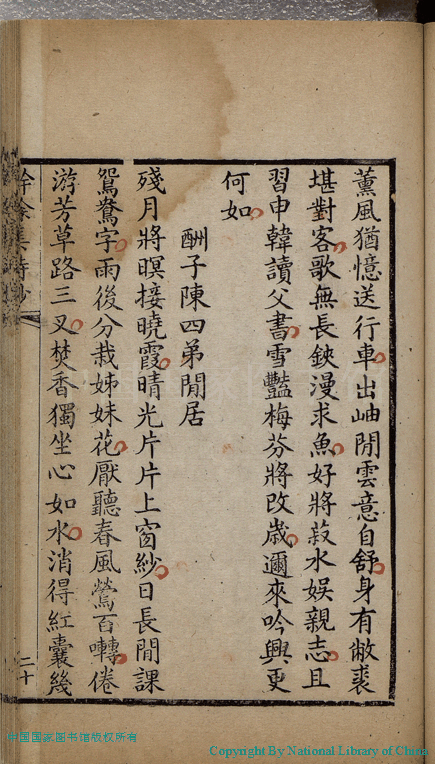 薰風猶憶送行車出岫閒雲意自舒身有敝裘
堪對客歌無長鋏漫求魚好將菽水娛親志且
習申韓讀父書雪豔梅芬將改歲邇來吟興更
何如
酬子陳四弟閒居
殘月將暝接曉霞晴光片片上窗紗日長閒課
鴛鴦字雨後分栽姊妹花厭聽春風鶯百囀倦
游芳草路三叉焚香獨坐心如水消得紅囊幾
集詩鈔
二十
中国国家图书馆版权所有
Copyright By National Library of China